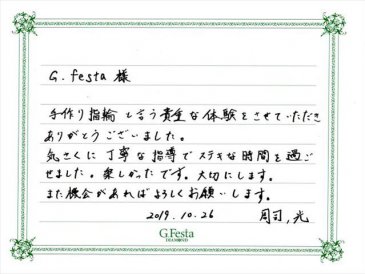 G.festa 様
手作り指輪と言う貴重な体験をさせていただき
ありがとうございました。
気さくに丁寧な指導でステキな時間を過ご
せました。楽しかったです。大切にします。
また機会があればよろしくお願いします。
2019.10.26 周司,光
G.Festa
DIAMOND